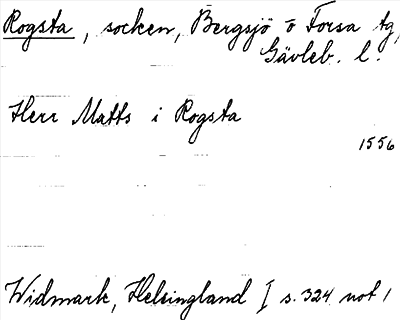 Rogsta, socken, Bergsjö o Forsa tg,
Gävleb. l.
Herr Matts i Rogsta
1556
Widmark, Helsingland I s. 324 not 1